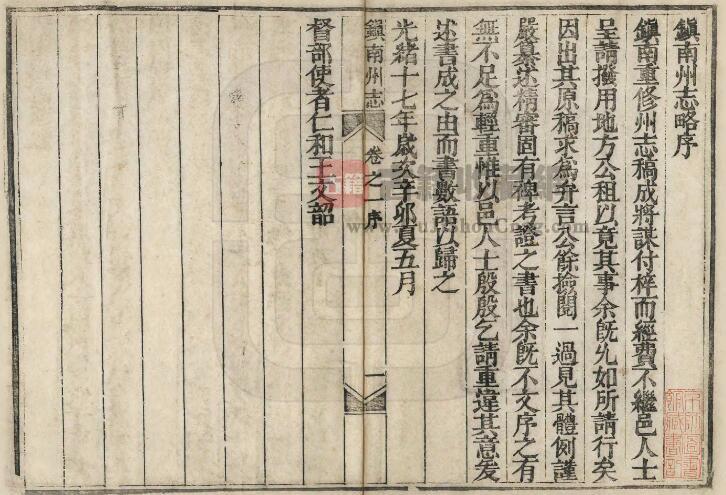 鎮南州志略序
鎮南重修州志稿成將謀付梓而經費不繼邑人士
呈請撥用地方公租以竟其事余旣允如所請行矣
因出其原稿求爲弁言公餘撿閱一過見其體例謹
嚴纂述精審固有裨考證之書也余旣不文序之有
無不足爲輕重惟以邑人士殷殷乞請重違其意爰
述書成之由而書數語以歸之
光緒十七年歲次辛卯夏五月
鎮南州志
卷之一 序
一
督部使者仁和王文韶